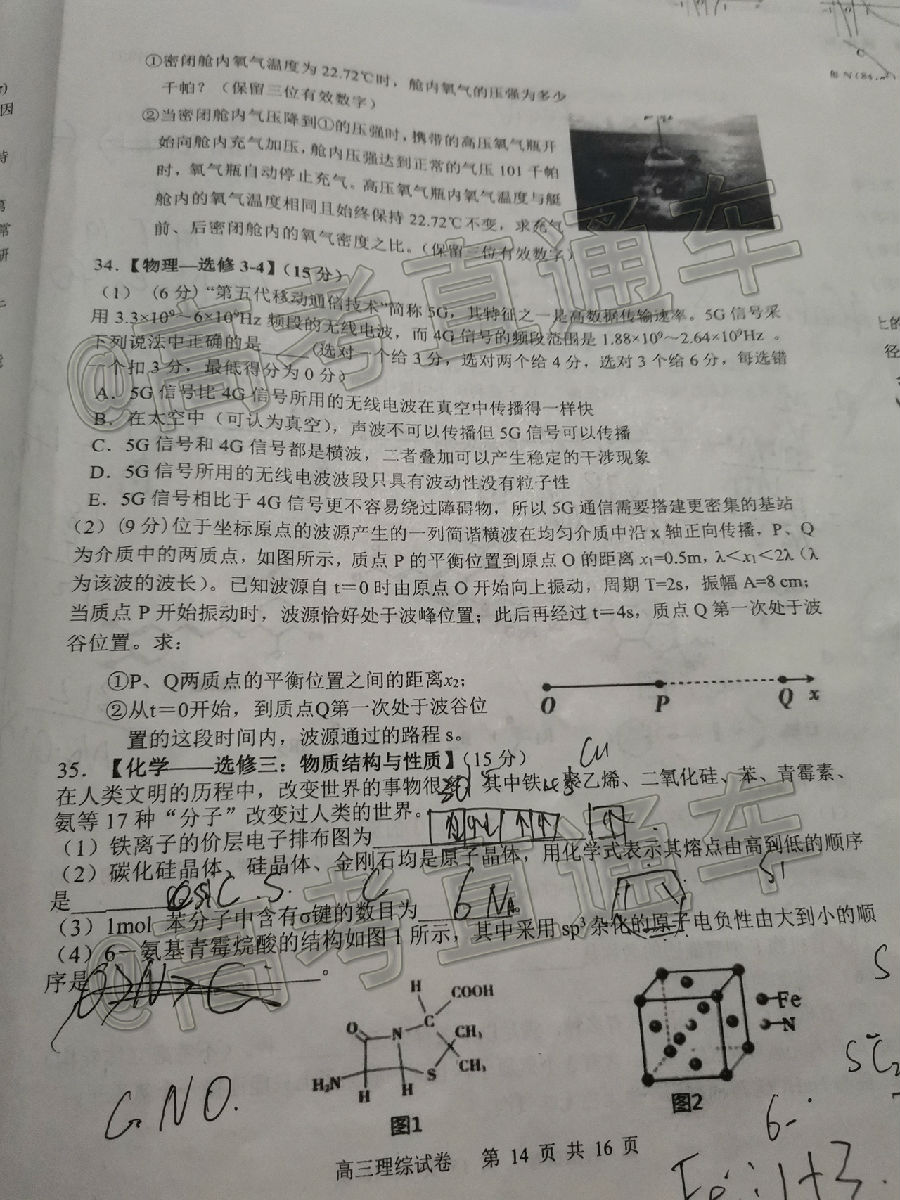 ①密闭舱内氧气温度为22.72℃时，舱内氧气的压强为多少
千帕？（保留三位有效数字）
②当密闭舱内气压降到①的压强时，携带的高压氧气瓶开
始向舱内充气加压，舱内压强达到正常的气压101千帕
时，氧气瓶自动停止充气。高压氧气瓶内氧气温度与艇
舱内的氧气温度相同且始终保持22.72℃不变，求充气
前、后密闭舱内的氧气密度之比。（保留三位有效数字）
34．【物理—选修3-4】（15分）
（1）（6分）“第五代移动通信技术”简称5G，其特征之一是高数据传输速率。5G信号采
用3.3×10⁹～6×10⁹Hz频段的无线电波，而4G信号的频段范围是1.88×10⁹～2.64×10⁹Hz。
下列说法中正确的是____（选对一个给3分，选对两个给4分，选对3个给6分，每选错
一个扣3分，最低得分为0分）
A．5G信号比4G信号所用的无线电波在真空中传播得一样快
B．在太空中（可认为真空），声波不可以传播但5G信号可以传播
C．5G信号和4G信号都是横波，二者叠加可以产生稳定的干涉现象
D．5G信号所用的无线电波波段只具有波动性没有粒子性
E．5G信号相比于4G信号更不容易绕过障碍物，所以5G通信需要搭建更密集的基站
（2）（9分）位于坐标原点的波源产生的一列简谐横波在均匀介质中沿x轴正向传播，P、Q
为介质中的两质点，如图所示，质点P的平衡位置到原点O的距离x₁=0.5m，λ＜x₁＜2λ（λ
为该波的波长）。已知波源自t＝0时由原点O开始向上振动，周期T=2s，振幅A=8 cm；
当质点P开始振动时，波源恰好处于波峰位置；此后再经过t＝4s，质点Q第一次处于波
谷位置。求：
①P、Q两质点的平衡位置之间的距离x₂；
②从t＝0开始，到质点Q第一次处于波谷位
置的这段时间内，波源通过的路程s。
O P Q x
35．【化学——选修三：物质结构与性质】（15分）
Cu
在人类文明的历程中，改变世界的事物很多，其中铁、聚乙烯、二氧化硅、苯、青霉素、
氨等17种“分子”改变过人类的世界。
（1）铁离子的价层电子排布图为
（2）碳化硅晶体、硅晶体、金刚石均是原子晶体，用化学式表示其熔点由高到低的顺序
是
C
Si
（3）1mol 苯分子中含有σ键的数目为 6 NA
（4）6－氨基青霉烷酸的结构如图1所示，其中采用sp³杂化的原子电负性由大到小的顺
序是 O>N>C 。
H COOH
O N C CH₃
CH₃
H₂N S
H H
图1
Fe
N
图2
C N O.
S
6-
Fe: 1+3
高三理综试卷 第 14 页 共 16 页
@高考直通车
@高考直通车